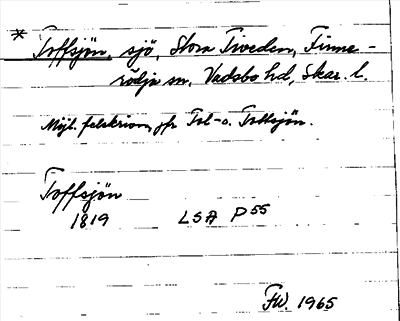 * Toffsjön, sjö, Stora Tiveden, Finne-
rödja sn, Vadsbo hd, Skar. l.
Möjl. felskrivn, jfr Tol- o. Toltsjön.
Toffsjön
1819 LSA P55
FW. 1965